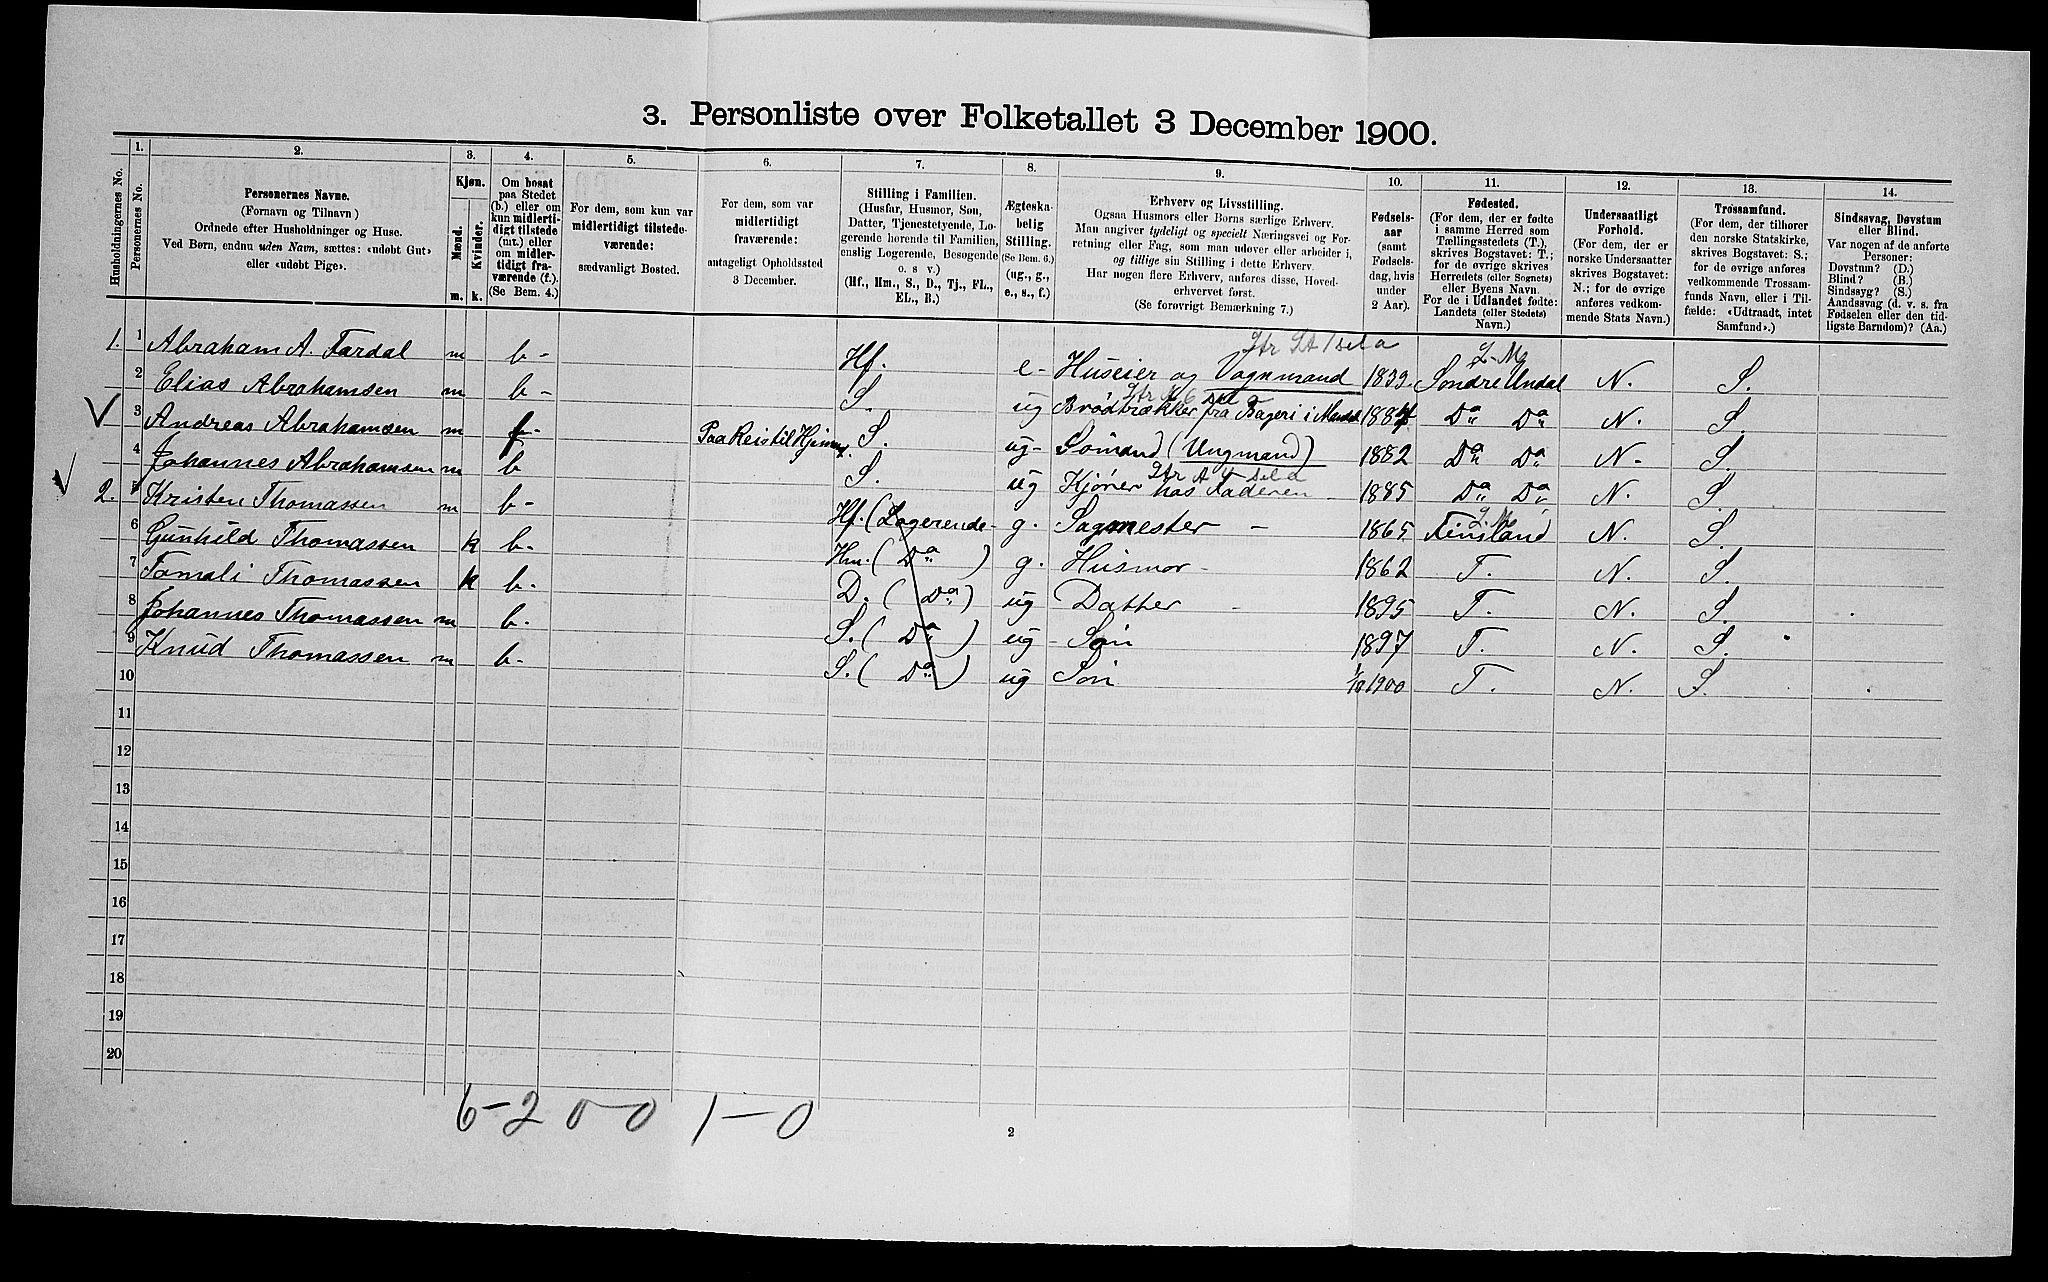 3. Personliste over Folketallet 3 December 1900.
Husholdningernes No.
1.
Personernes No.
2.
Personernes Navne.
(Fornavn og Tilnavn)
Ordnede efter Husholdninger og Huse.
Ved Børn, endnu uden Navn, sættes: «udøbt Gut»
eller «udøbt Pige».
3.
Kjøn.
Mænd.
Kvinder.
m. k.
4.
Om bosat
paa Stedet
(b.) eller om
kun midlerti-
digt tilstede
(mt.) eller
om midler-
tidigt fra-
værende (f.).
(Se Bem. 4.)
5.
For dem, som kun var
midlertidigt tilstede-
værende:
sædvanligt Bosted.
6.
For dem, som var
midlertidigt
fraværende:
antageligt Opholdssted
3 December.
7.
Stilling i Familien.
(Husfar, Husmor, Søn,
Datter, Tjenestetyende, Lo-
gerende hørende til Familien,
enslig Logerende, Besøgende
o. s v.)
(Hf., Hm., S., D., Tj., FL.,
EL., B.)
8.
Ægteska-
belig
Stilling.
(Se Bem. 6.)
(ug., g.,
e., s., f.)
9.
Erhverv og Livsstilling.
Ogsaa Husmors eller Børns særlige Erhverv.
Man angiver tydeligt og specielt Næringsvei og For-
retning eller Fag, som man udøver eller arbeider i,
og tillige sin Stilling i dette Erhverv.
Har nogen flere Erhverv, anføres disse, Hoved-
erhvervet først.
(Se forøvrigt Bemærkning 7.)
10.
Fødsels-
aar
(samt
Fødsels-
dag, hvis
under
2 Aar).
11.
Fødested.
(For dem, der er fødte
i samme Herred som
Tællingsstedets (T.),
skrives Bogstavet: T.;
for de øvrige skrives
Herredets (eller Sognets)
eller Byens Navn.
For de i Udlandet fødte:
Landets (eller Stedets)
Navn.)
12.
Undersaatligt
Forhold.
(For dem, der er
norske Undersaatter
skrives Bogstavet:
N.; for de øvrige
anføres vedkom-
mende Stats Navn.)
13.
Trossamfund.
(For dem, der tilhører
den norske Statskirke,
skrives Bogstavet: S.;
for de øvrige anføres
vedkommende Trossam-
funds Navn, eller i Til-
fælde: «Udtraadt, intet
Samfund».)
14.
Sindssvag, Døvstum
eller Blind.
Var nogen af de anførte
Personer:
Døvstum? (D.)
Blind? (B.)
Sindssyg? (S.)
Aandssvag (d. v. s. fra
Fødselen eller den tid-
ligste Barndom)? (Aa.)
1. 1 Abraham A. Fardal m b- Hf. e- Huseier og Vognmand 1839. Søndre Undal N. S.
2 Elias Abrahamsen m b- S. ug Brödtrækker fra Bageri i Mandal 1884 Do Do N. S.
3 Andreas Abrahamsen m f- Paa Reis til Hjemmet. S. ug- Sømand (Ungmand) 1882 Do Do N. S.
4 Johannes Abrahamsen m b S. ug Kjörer hos Faderen 1885 Do Do N. S.
2. 5 Kristen Thomassen m b- Hf. (Logerende- g. Sagmester 1865 Finsland N. S.
6 Gunhild Thomassen k b- Hm. (Do) g. Husmor 1862 T. N. S.
7 Tomali Thomassen k b- D. (Do) ug Datter 1895 T. N. S.
8 Johannes Thomassen m b. S. (Do) ug Søn 1897 T. N. S.
9 Knud Thomassen m b- S. (Do) ug Søn 1/10 1900 T. N. S.
10
11
12
13
14
15
16
17
18
19
20
6-2 0-0 1-0
2